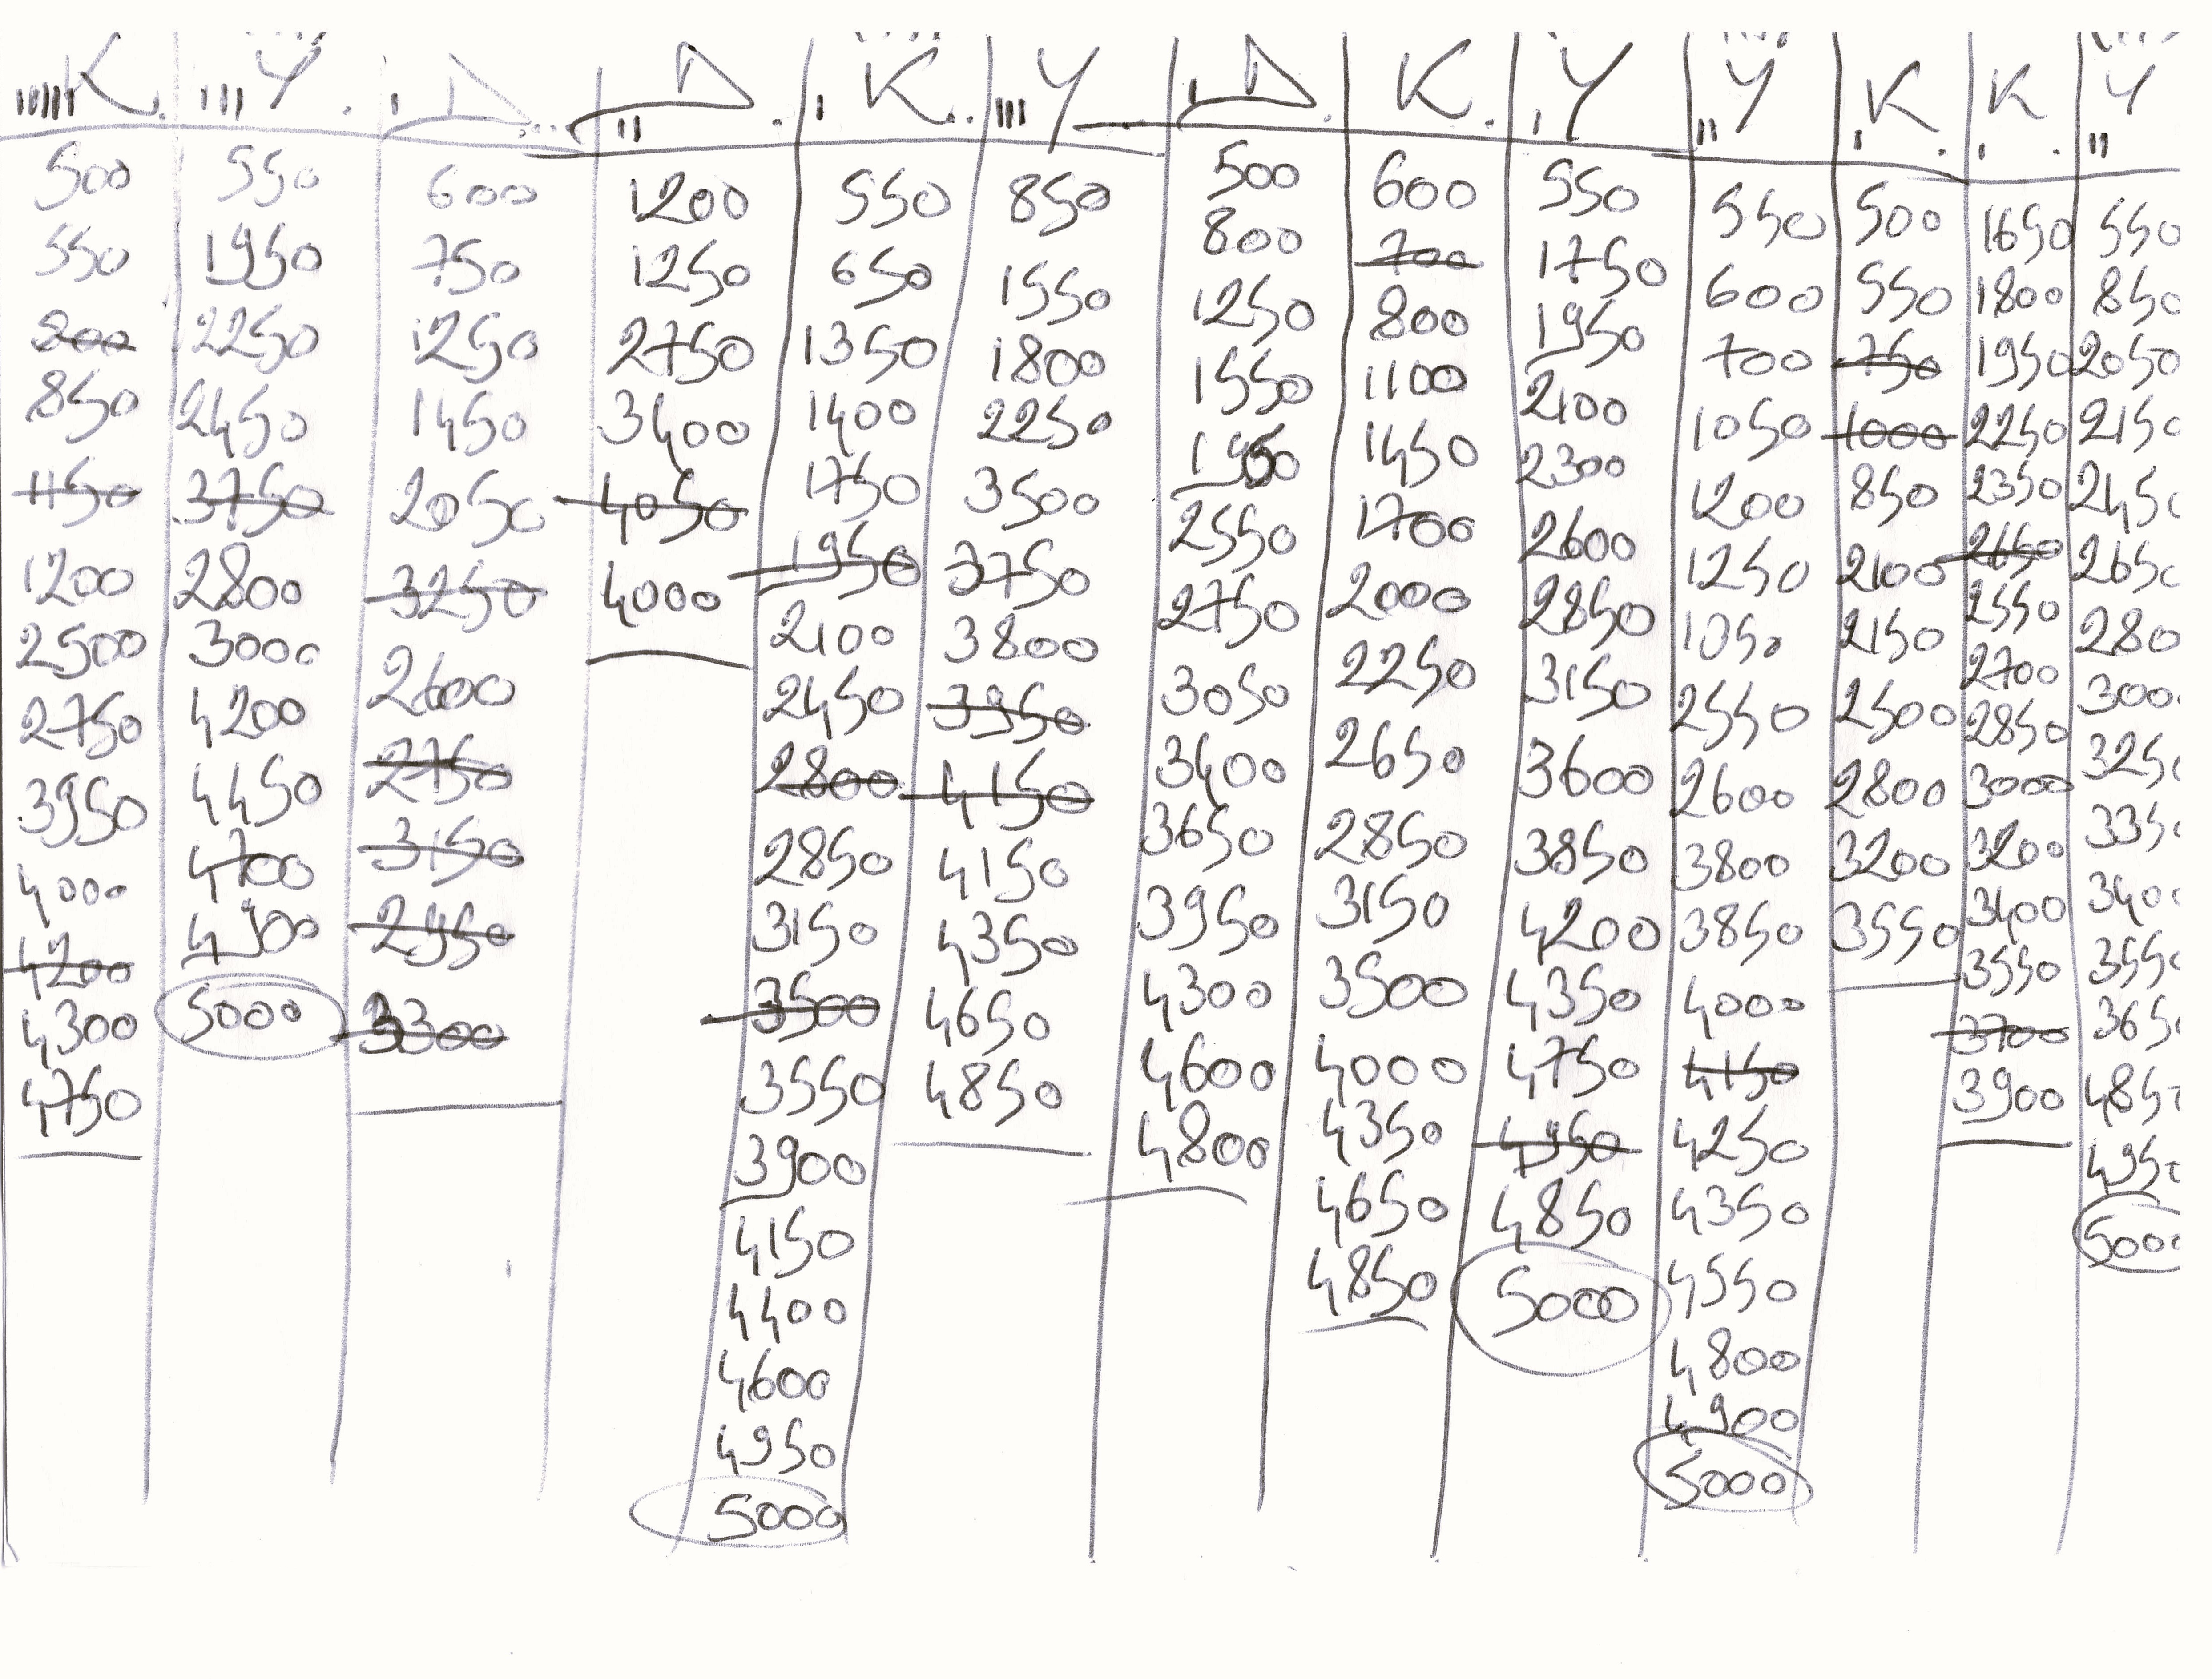 K Y D D K Y D K Y Y K K Y
500 550 600 1200 550 850 500 600 550 550 500 1650 550
550 1950 750 1250 650 1550 800 700 1750 600 550 1800 850
800 2250 1250 2750 1350 1800 1250 800 1950 700 750 1950 2050
850 2450 1450 3400 1400 2250 1550 1100 2100 1050 1000 2250 2150
1150 3750 2050 4050 1750 3500 1450 2300 1200 850 2350 2450
1200 2800 3250 4000 1950 3750 2550 1700 2600 1250 2100 2650 2650
2500 3000 2600 2100 3800 2750 2000 2850 1350 2150 2550 280
2750 4200 2750 2450 3950 3050 2250 3150 2550 2500 2700 300
3950 4450 3150 2800 4150 3400 2650 3600 2600 2800 2850 325
4000 4700 2950 2850 4150 3650 2850 3850 3800 3200 3000 335
4200 4900 3300 3150 4350 3950 3150 4200 3850 3550 3200 340
4300 5000 3500 4650 4300 3500 4350 4000 3400 355
4750 3550 4850 4600 4000 4750 4150 3550 365
3900 4800 4350 4950 4250 3700 485
4150 4650 4850 4350 3900 4950
4400 4850 5000 4550 500
4600 4800
4950 4900
5000 5000